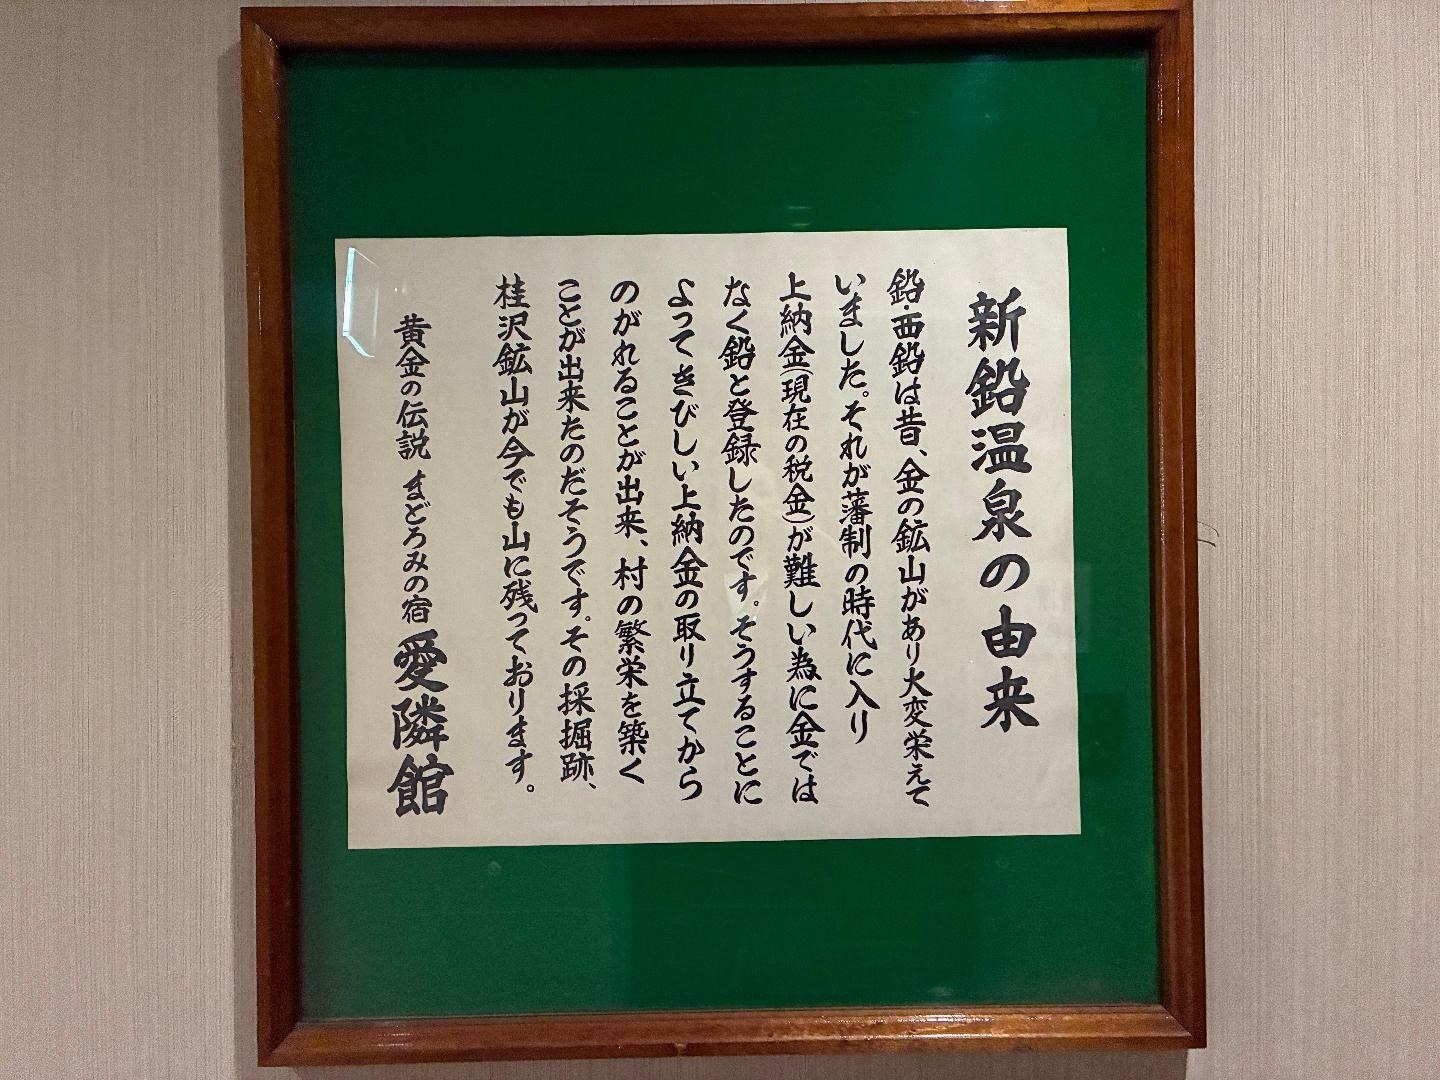 新鉛温泉の由来
鉛・西鉛は昔、金の鉱山があり大変栄えて
いました。それが藩制の時代に入り
上納金(現在の税金)が難しい為に金では
なく鉛と登録したのです。そうすることに
よってきびしい上納金の取り立てから
のがれることが出来、村の繁栄を築く
ことが出来たのだそうです。その採掘跡、
桂沢鉱山が今でも山に残っております。
黄金の伝説 まどろみの宿 愛隣館